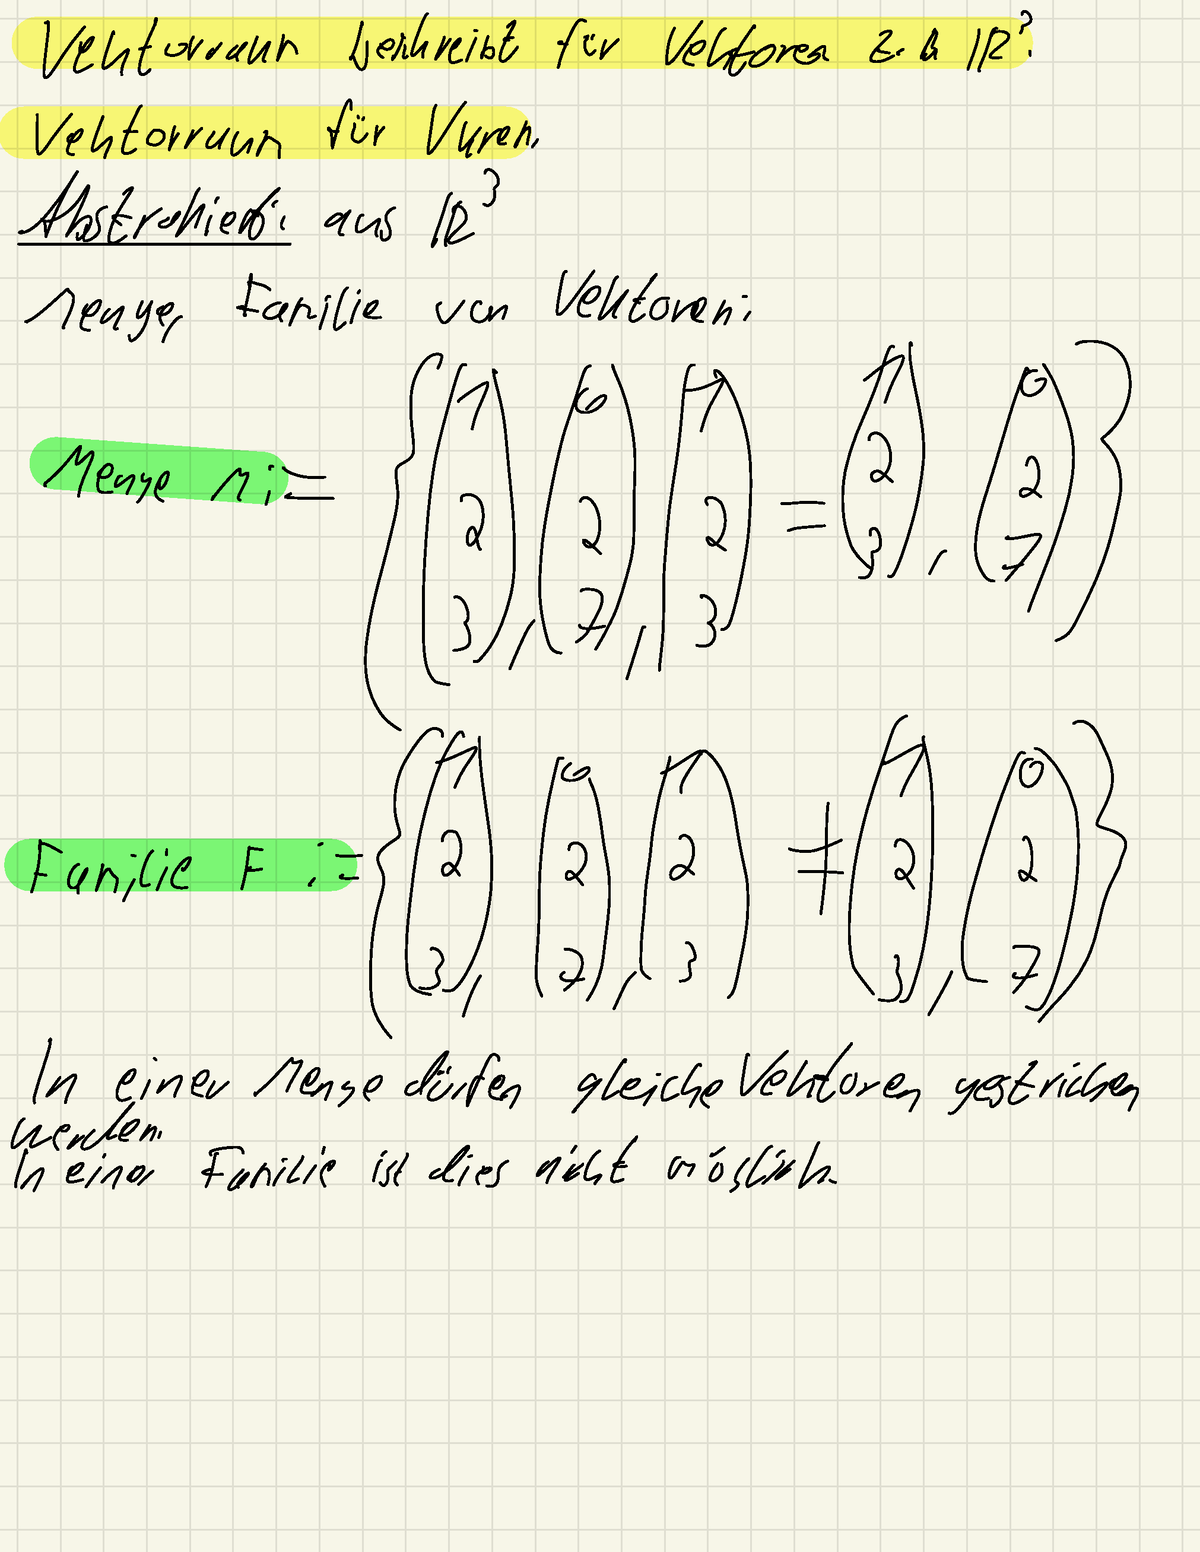 Vektorraum beschreibt für Vektoren z.B ℝ³.
Vektorraum für Vuren.
Abstrahiert: aus ℝ³
Menge, Familie von Vektoren:
Menge M := { (1 2 3), (0 2 7), (1 2 3) = (1 2 3), (0 2 7) }
Familie F := { (1 2 3), (0 2 7), (1 2 3) ≠ (1 2 3), (0 2 7) }
In einer Menge dürfen gleiche Vektoren gestrichen
werden.
In einer Familie ist dies nicht möglich.